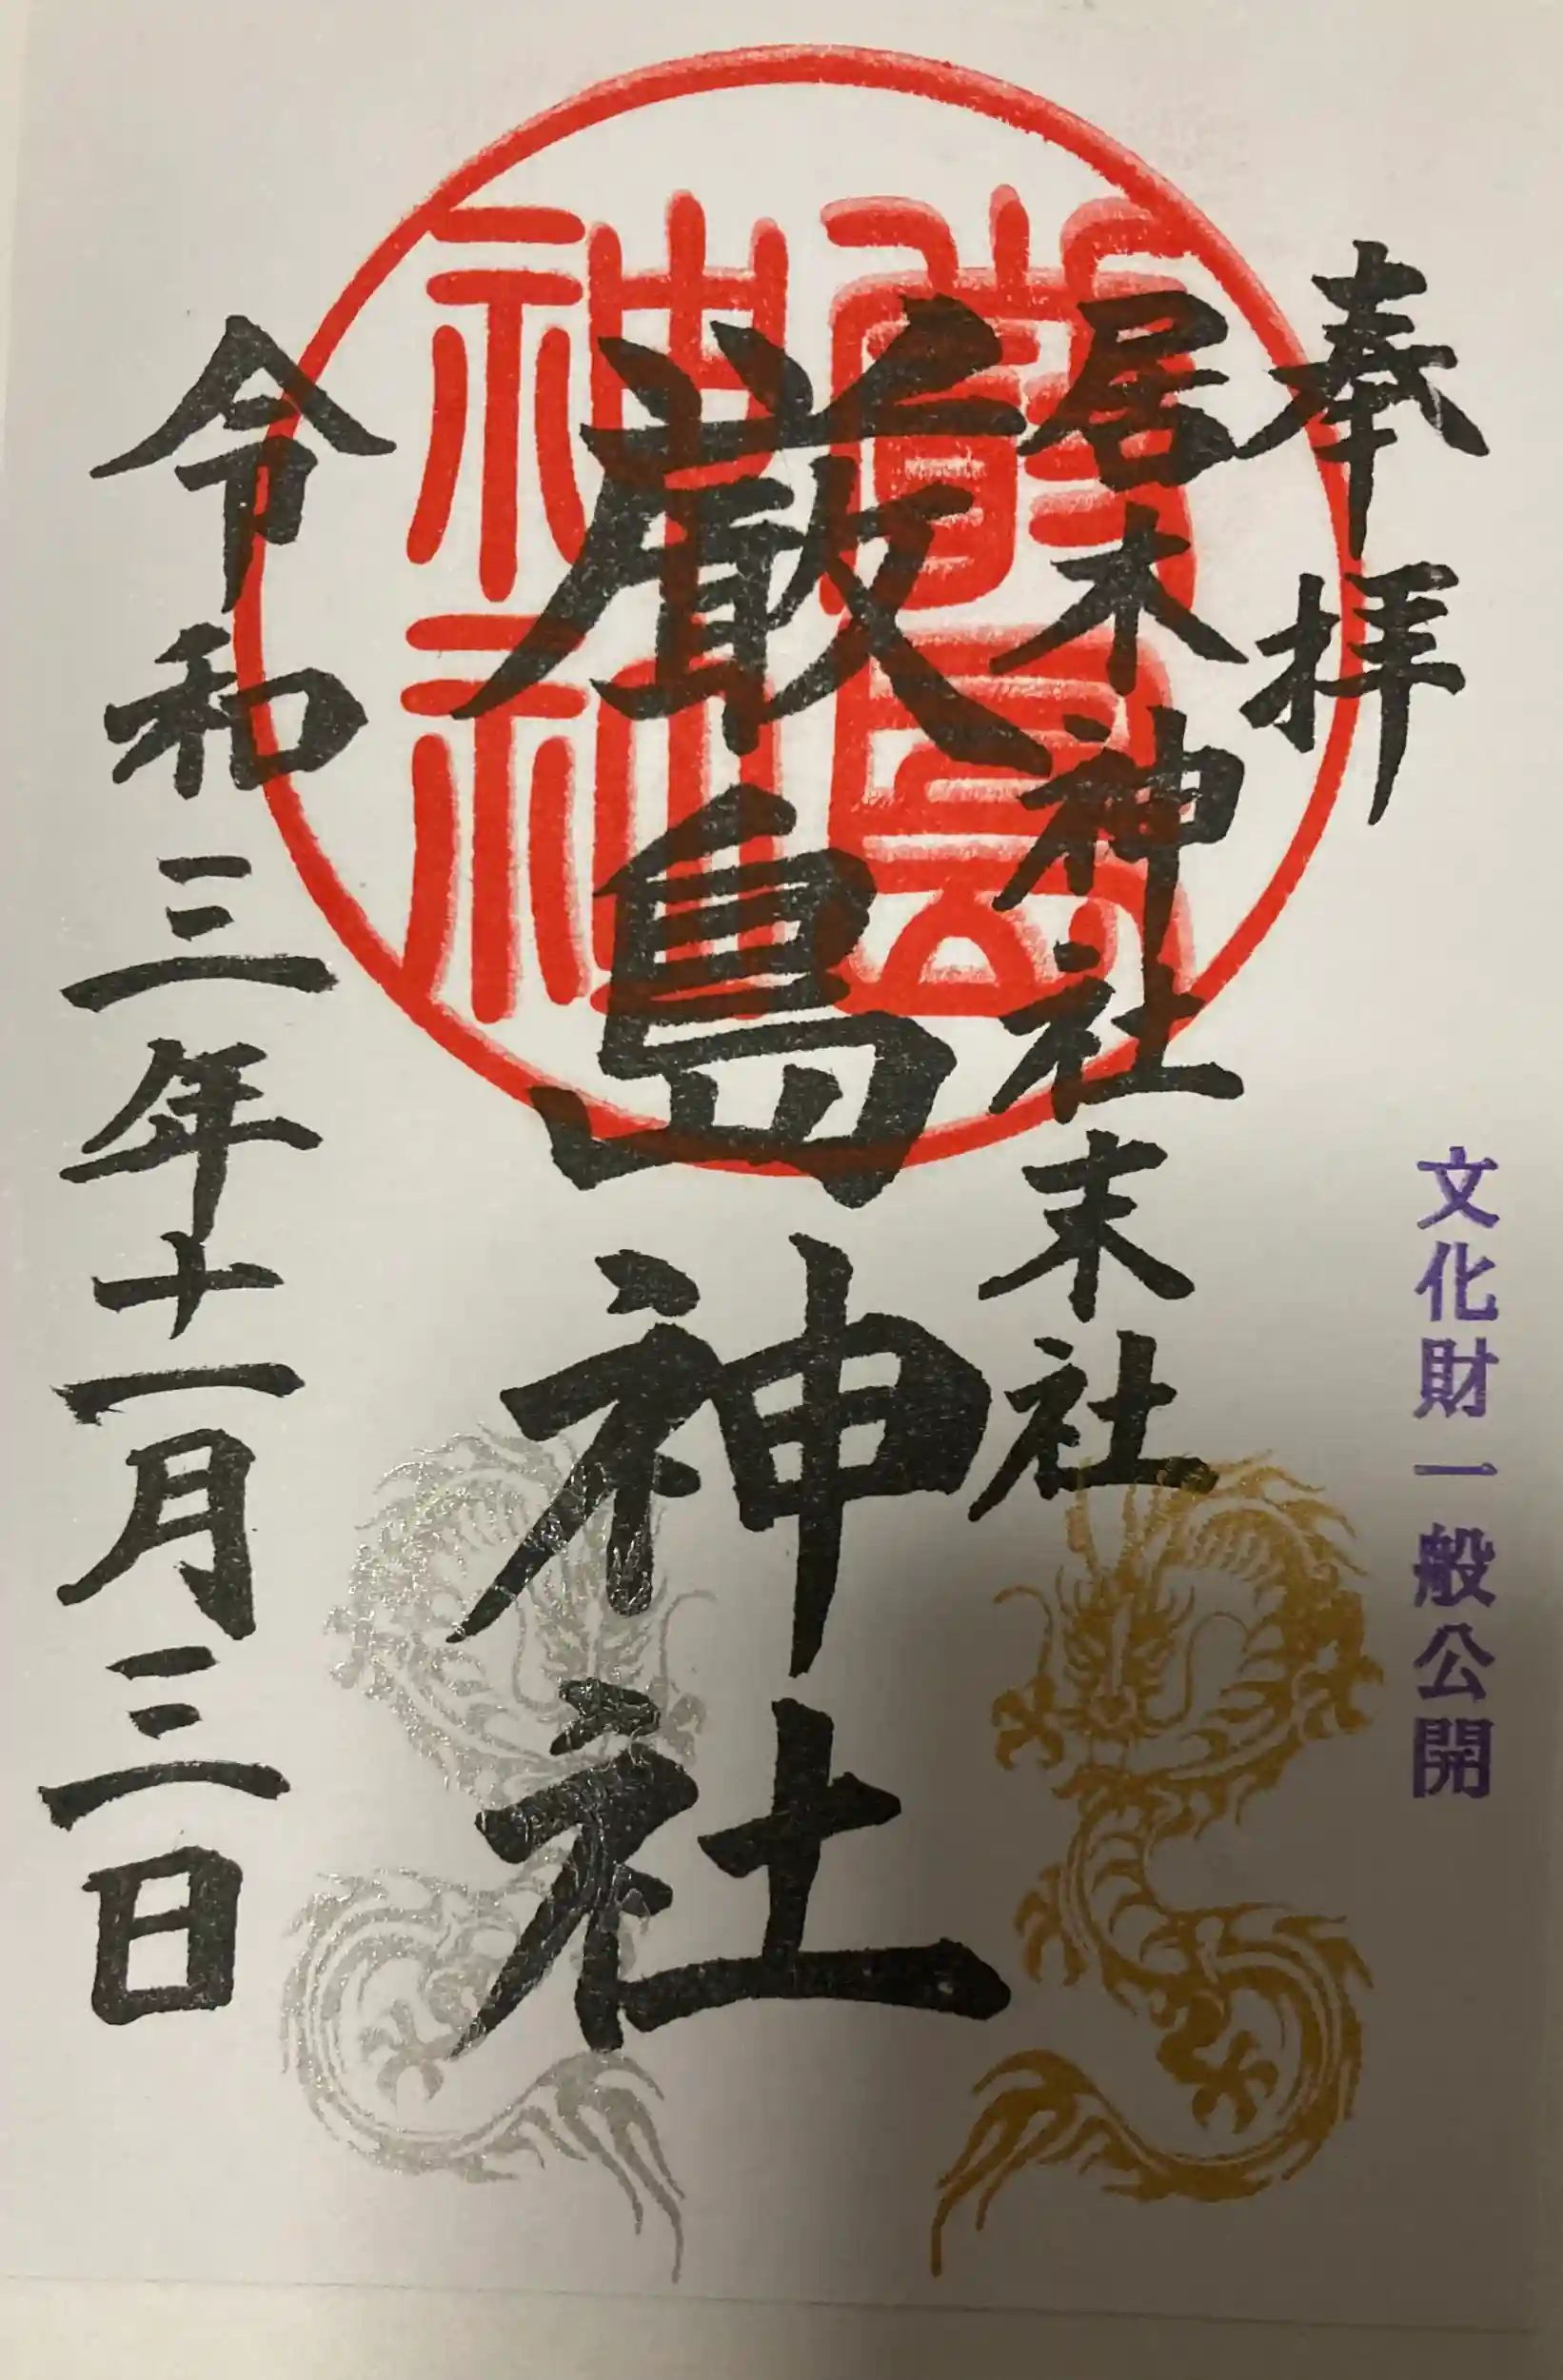 奉拝
文化財一般公開
居木神社末社
厳島神社
厳島神社
令和三年十一月三日